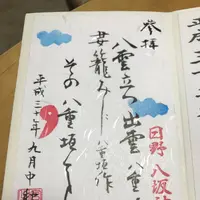 参拝
八雲立つ出雲八重
妻籠みに八重垣作
その八重垣を
平成三十年九月中
日野八坂神